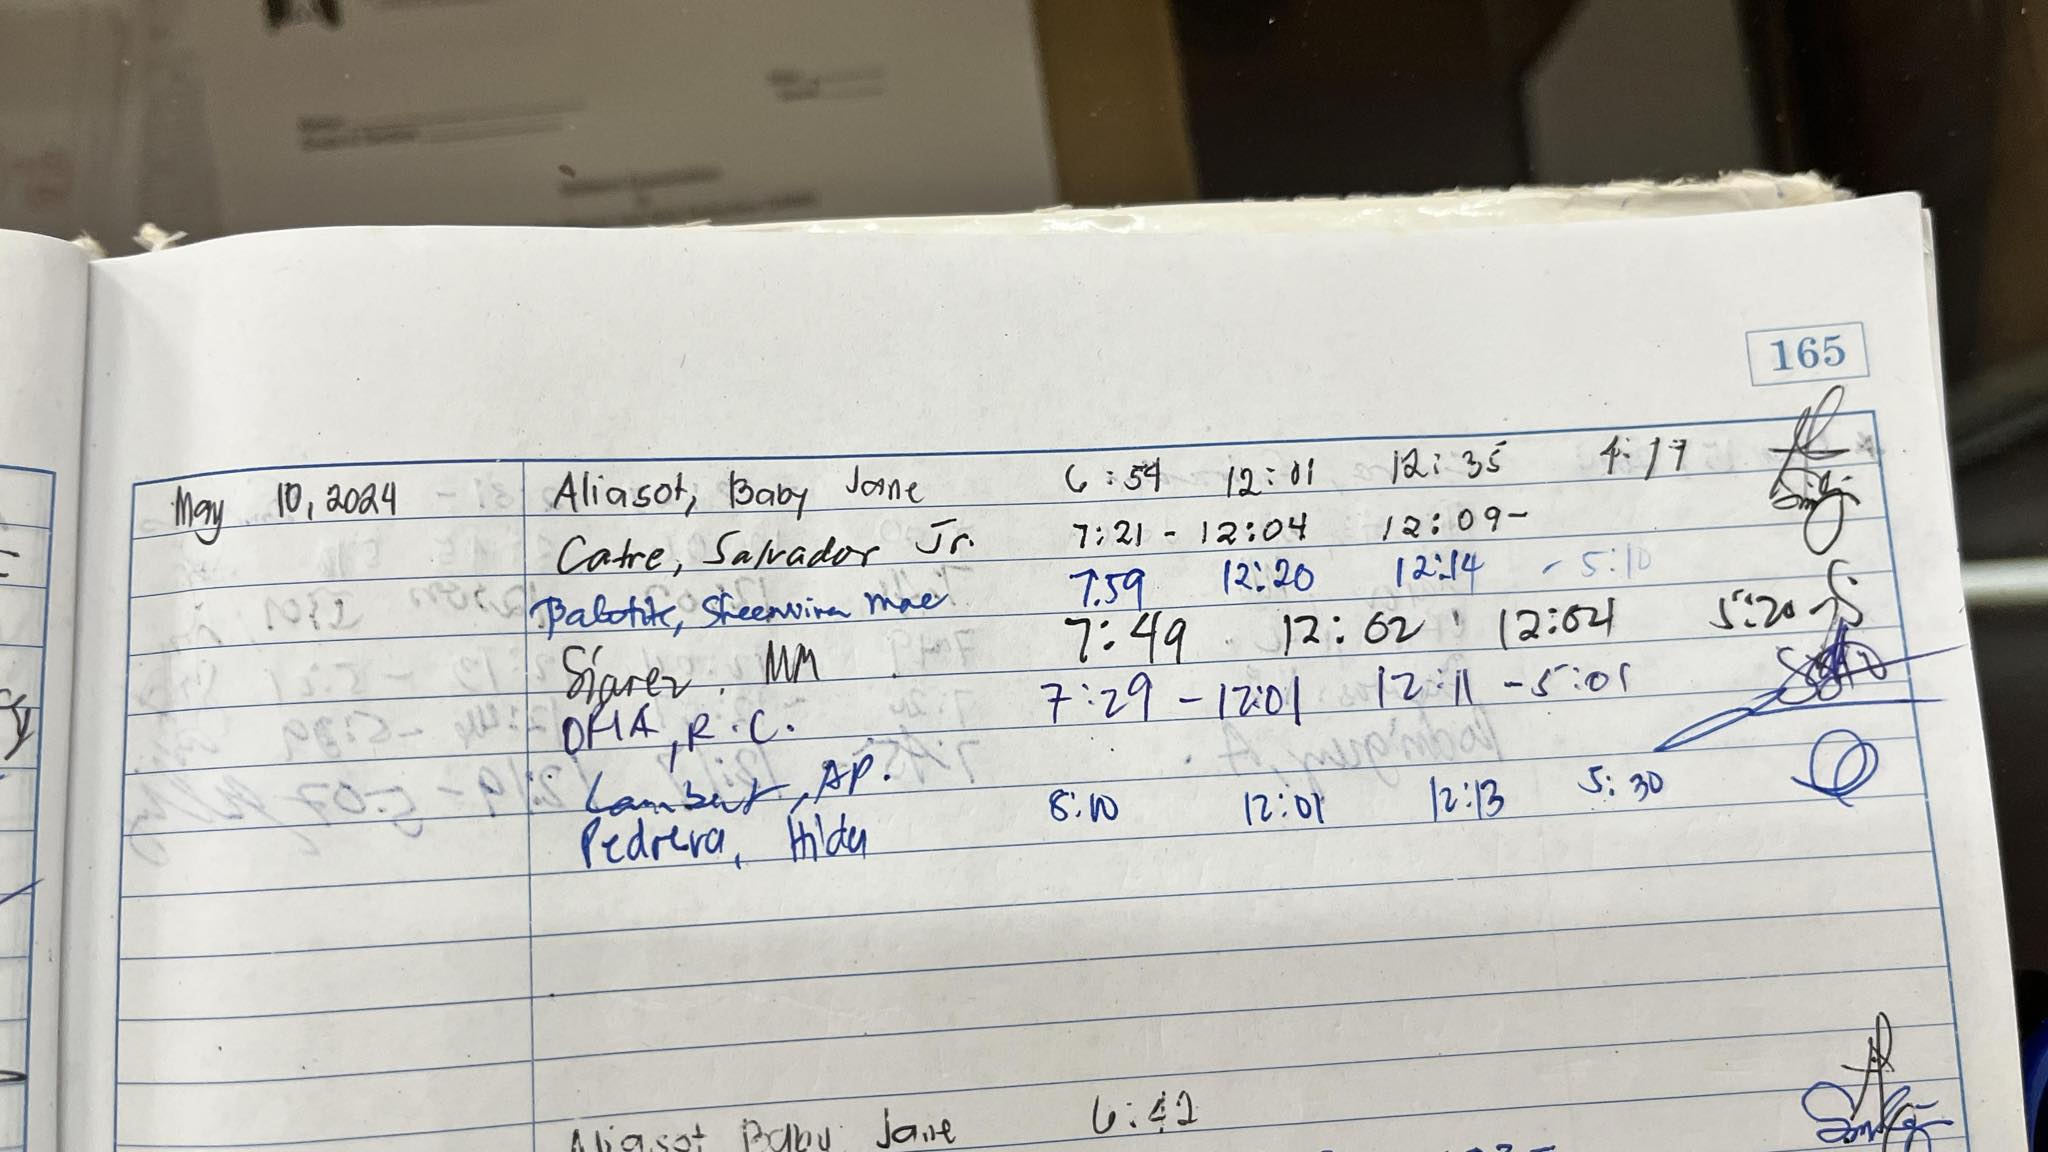 165
May 10, 2024 Aliasot, Baby Jane 6:54 12:01 12:35 4:17
Catre, Salvador Jr. 7:21 - 12:04 12:09-
Balotite, Sheenvira Mae 7:59 12:20 12:14 - 5:10
Sigarez, MM 7:49 12:02 12:04 5:20
OHA, R.C. 7:29 - 12:01 12:11 - 5:01
Lambert, AP.
Pedrera, Hilda 8:10 12:01 12:13 5:30
Aliasot Baby Jane 6:42